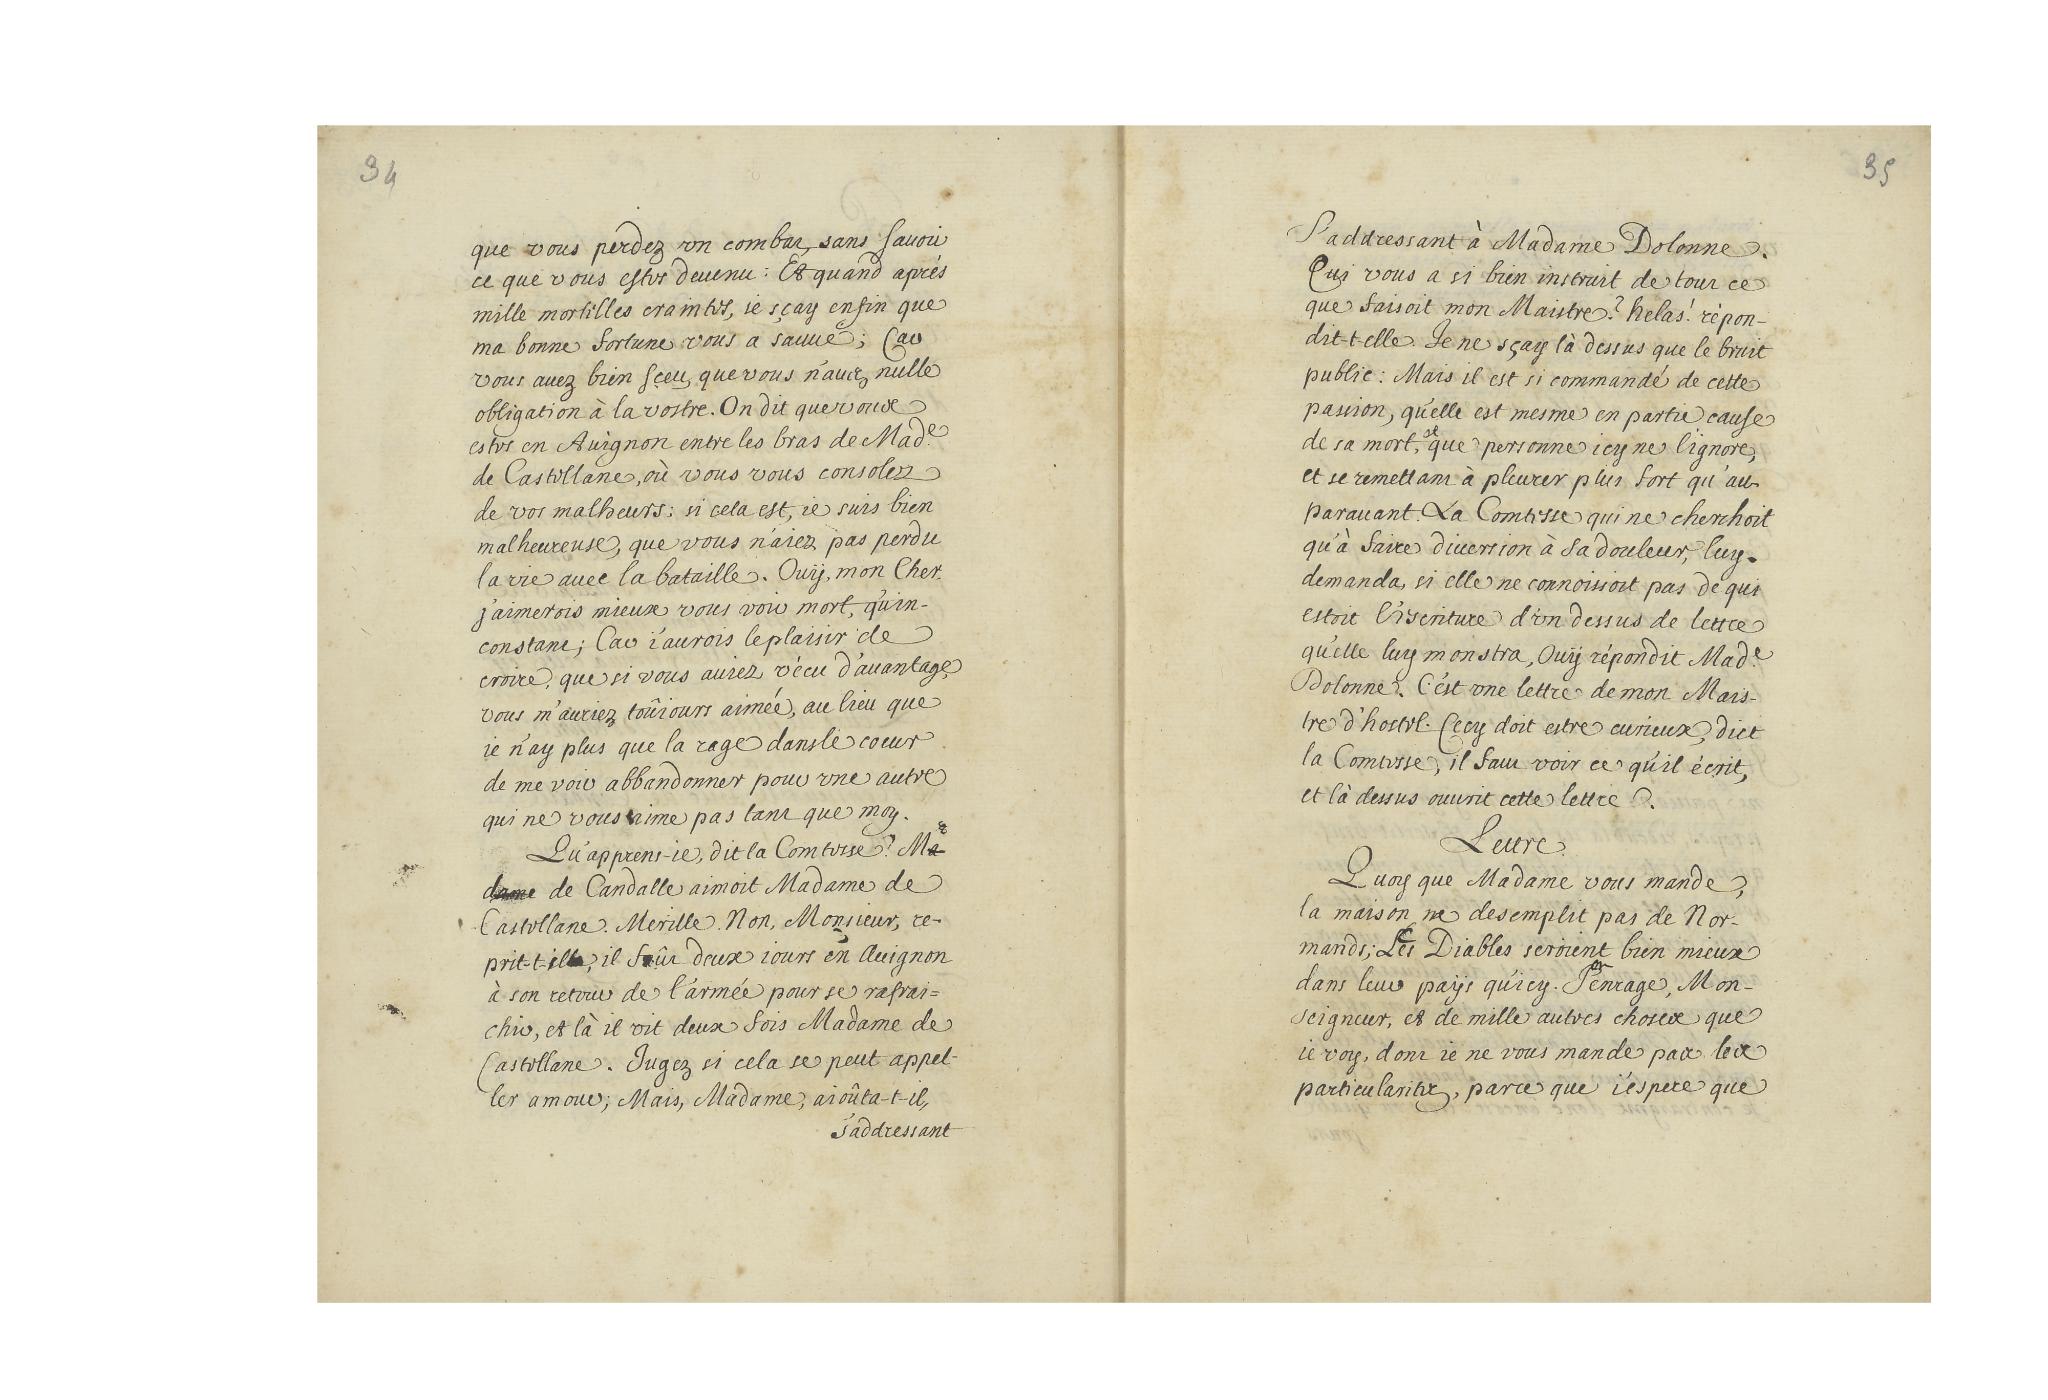 34
que vous perdez vn combat, sans sauoir
ce que vous estes deuenu: Et quand aprés
mille mortelles craintes, ie sçay enfin que
ma bonne fortune vous a sauué; Car
vous auez bien sçeu, que vous n'auez nulle
obligation à la vostre. On dit que vous
estes en Auignon entre les bras de Made.
de Castellane, où vous vous consolez
de vos malheurs: si cela est, ie suis bien
malheureuse, que vous n'aiez pas perdu
la vie auec la bataille. Ouy, mon Cher.
j'aimerois mieux vous voir mort, qu'in-
constant; Car i'aurois le plaisir de
croire, que si vous auiez vécu d'auantage,
vous m'auriez toûiours aimée, au lieu que
ie n'ay plus que la rage dans le coeur
de me voir abbandonner pour vne autre
qui ne vous aime pas tant que moy.
Qu'apprens-ie, dit la Comtesse? Mr
de Candalle aimoit Madame de
Castellane. Merille. Non, Monsieur, re-
prit-t-il, il fût deux iours en Auignon
à son retour de l'armée pour se rafrai=
chir, et là il vit deux fois Madame de
Castellane. Jugez si cela se peut appel-
ler amour; Mais, Madame, aioûta-t-il,
s'addressant
35
S'addressant à Madame Dolonne.
Qui vous a si bien instruit de tout ce
que faisoit mon Maistre? helas! répon-
dit-t-elle Je ne sçay là dessus que le bruit
public: Mais il est si commandé de cette
passion, qu'elle est mesme en partie cause
de sa mort, et que personne icy ne l'ignore,
et se remettant à pleurer plus fort qu'au-
parauant. La Comtesse qui ne cherchoit
qu'à faire diuersion à sa douleur, luy
demanda, si elle ne connoissoit pas de qui
estoit l'éscriture d'vn dessus de lettre
qu'elle luy monstra, Ouÿ répondit Made.
Dolonne. C'ést vne lettre de mon Mais-
tre d'hostel. Cecy doit estre curieux, dict
la Comtesse, il faut voir ce qu'il écrit,
et là dessus ouurit cette lettre.
Lettre.
Quoy que Madame vous mande,
la maison ne desemplit pas de Nor-
mands; Les Diables seroient bien mieux
dans leur paÿs qu'icy. J'enrage, Mon-
seigneur, et de mille autres choses que
ie voy, dont ie ne vous mande pas les
particularitez, parce que i'espere que